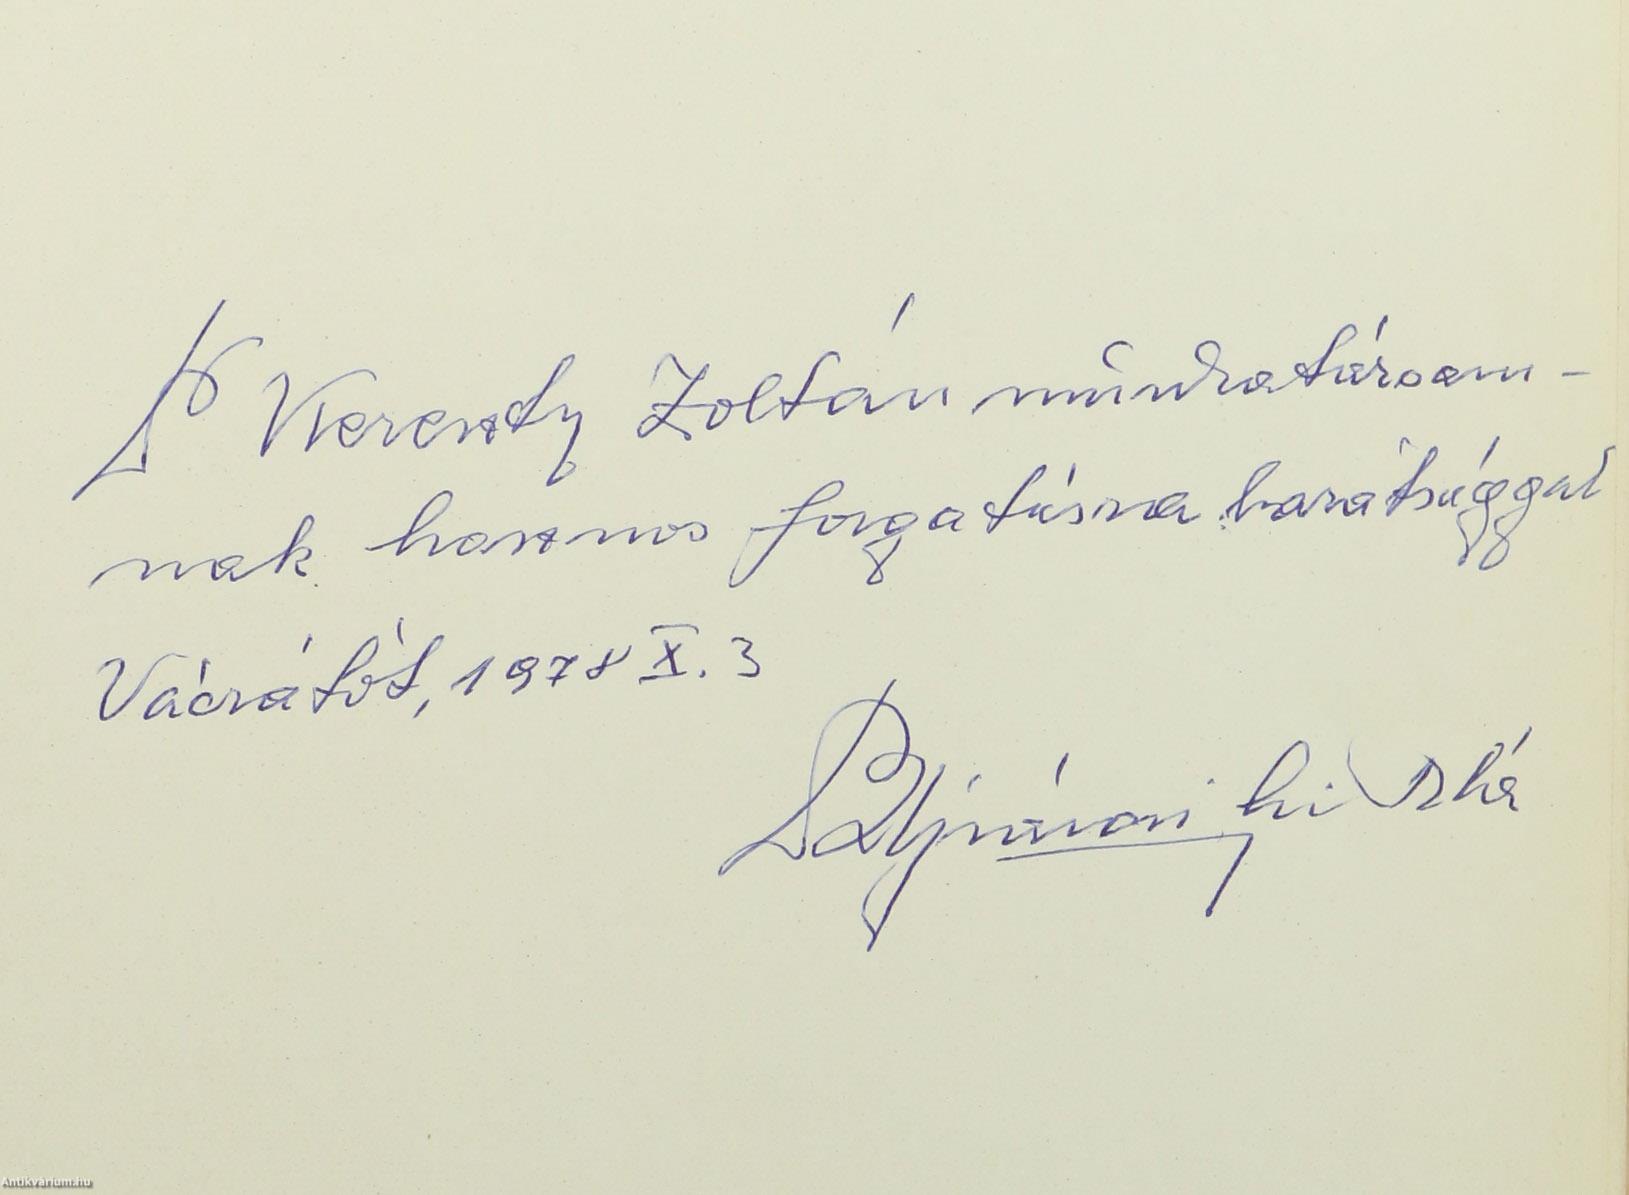 Dr Kereszty Zoltán munkatársam-
nak hasznos forgatásra barátsággal
Vácrátót, 1978 X. 3
Ujvárosi
Antikvárium.hu